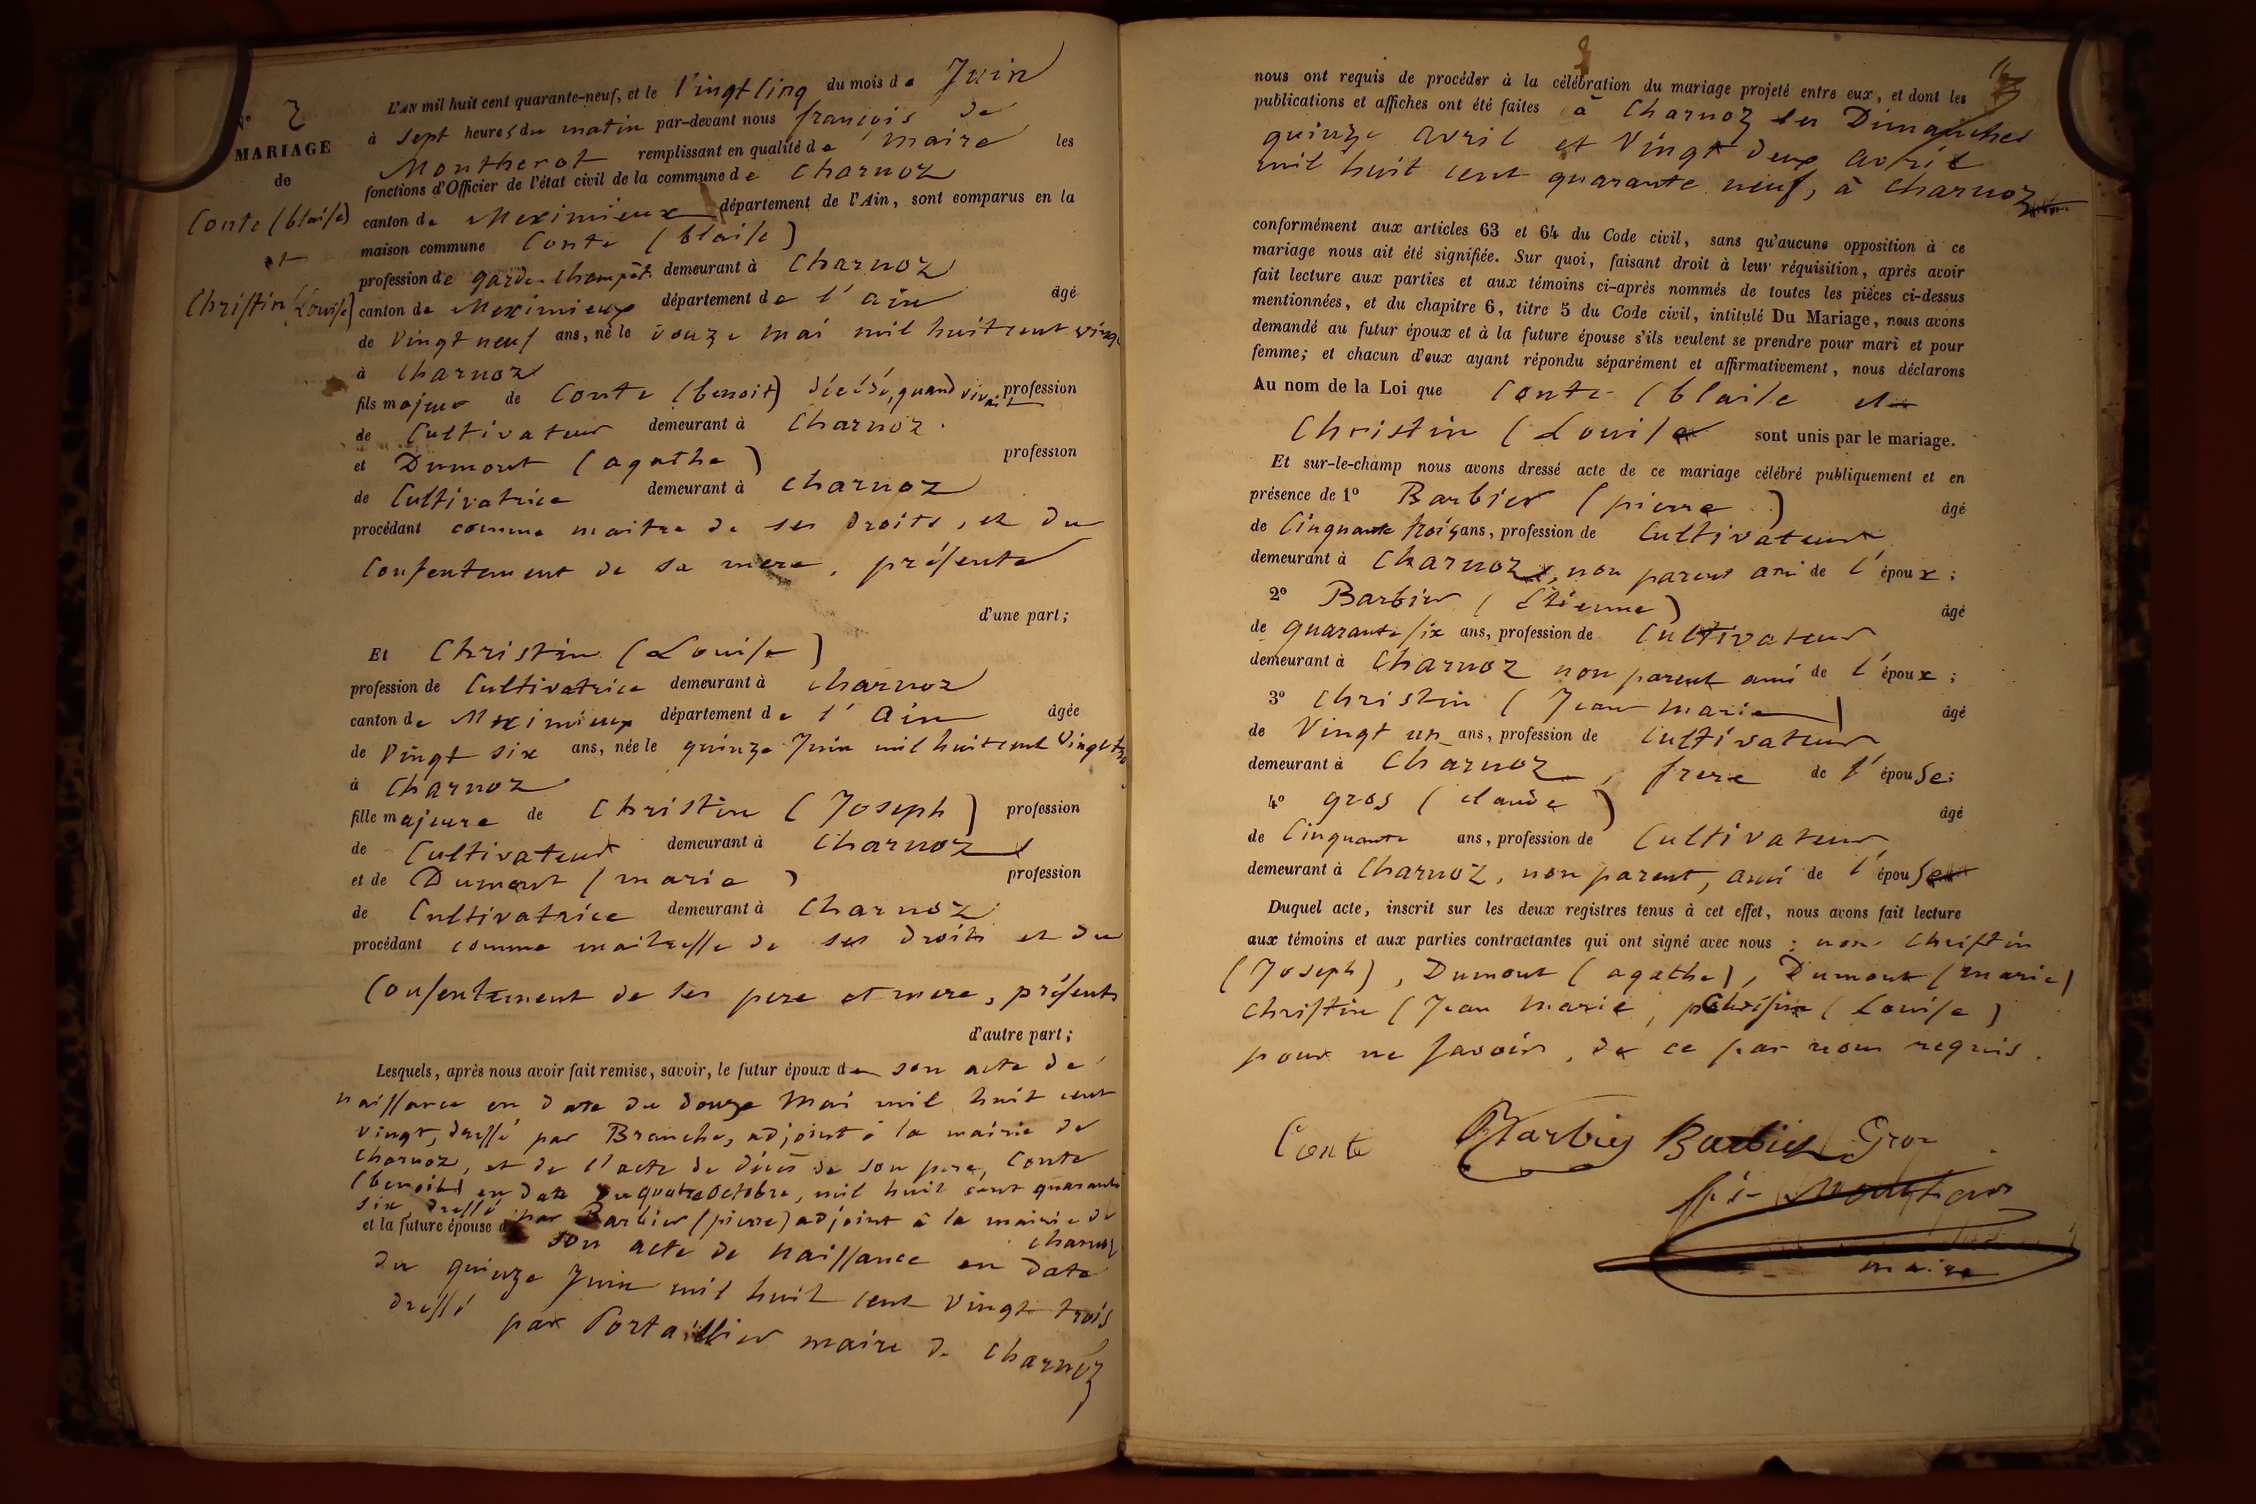 N° 2
MARIAGE
de
Conte (blaise)
et
Christin (Louise)
L'AN mil huit cent quarante-neuf, et le Vingt cinq du mois de Juin
à sept heures du matin par-devant nous françois de
Montherot remplissant en qualité de maire les
fonctions d'Officier de l'état civil de la commune de Charnoz
canton de Meximieux département de l'Ain, sont comparus en la
maison commune Conte (blaise)
profession de garde-champêt. demeurant à Charnoz
canton de Meximieux département de l'ain âgé
de Vingt neuf ans, né le douze mai mil huit cent vingt
à Charnoz
fils majeur de Conte (benoit) décédé, quand vivait profession
de Cultivateur demeurant à Charnoz.
et Dumont (agathe) profession
de Cultivatrice demeurant à Charnoz
procédant comme maitre de ses droits, et du
Consentement de sa mere, présente
d'une part;
Et Christin (Louise)
profession de Cultivatrice demeurant à Charnoz
canton de Meximieux département de l'Ain âgée
de Vingt six ans, née le quinze Juin mil huit cent Vingt tro
à Charnoz
fille majeure de Christin (Joseph) profession
de Cultivateur demeurant à Charnoz
et de Dumont (marie) profession
de Cultivatrice demeurant à Charnoz
procédant comme maitresse de ses droits et du
Consentement de ses pere et mere, présents
d'autre part;
Lesquels, après nous avoir fait remise, savoir, le futur époux de son acte de
naissance en date du douze Mai mil huit cent
vingt, dressé par Branche, adjoint à la mairie de
Charnoz, et de l'acte de décès de son pere, Conte
(benoit) en date du quatre octobre, mil huit cent quarante
six dressé par Barbier (pierre) adjoint à la mairie de
Charnoz
et la future épouse de son acte de naissance en date
du quinze Juin mil huit cent Vingt trois
dressé par Portaillier maire de Charnoz
nous ont requis de procéder à la célébration du mariage projeté entre eux, et dont les
publications et affiches ont été faites à Charnoz les Dimanches
quinze avril et Vingt deux avril
mil huit cent quarante neuf, à Charnoz
conformément aux articles 63 et 64 du Code civil, sans qu'aucune opposition à ce
mariage nous ait été signifiée. Sur quoi, faisant droit à leur réquisition, après avoir
fait lecture aux parties et aux témoins ci-après nommés de toutes les pièces ci-dessus
mentionnées, et du chapitre 6, titre 5 du Code civil, intitulé Du Mariage, nous avons
demandé au futur époux et à la future épouse s'ils veulent se prendre pour mari et pour
femme; et chacun d'eux ayant répondu séparément et affirmativement, nous déclarons
Au nom de la Loi que Conte (blaise et
Christin (Louise sont unis par le mariage.
Et sur-le-champ nous avons dressé acte de ce mariage célébré publiquement et en
présence de 1° Barbier (pierre) âgé
de Cinquante trois ans, profession de Cultivateur
demeurant à Charnoz, non parent ami de l'époux;
2° Barbier (Etienne) âgé
de quarante six ans, profession de Cultivateur
demeurant à Charnoz non parent ami de l'époux;
3° Christin (Jean marie) âgé
de Vingt un ans, profession de Cultivateur
demeurant à Charnoz, frere de l'épouse;
4° gros (claude) âgé
de Cinquante ans, profession de Cultivateur
demeurant à Charnoz, non parent, ami de l'épouse
Duquel acte, inscrit sur les deux registres tenus à cet effet, nous avons fait lecture
aux témoins et aux parties contractantes qui ont signé avec nous; non Christin
(Joseph), Dumont (agathe), Dumont (marie)
Christin (Jean Marie, Christin (Louise)
pour ne savoir, de ce par nous requis.
Conte Barbier Barbier Gros
maire